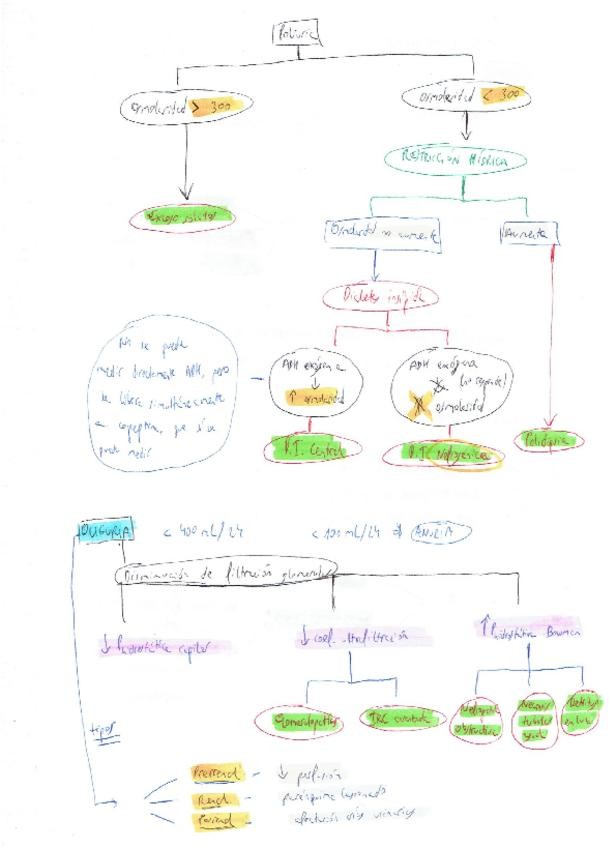 Poliuria
Osmolaridad > 300
Osmolaridad < 300
RESTRICCIÓN HÍDRICA
Exceso solutos
Osmolaridad no aumenta
Aumenta
Diabetes insípida
No se puede
medir directamente ADH, pero
se libera simultáneamente
a copeptina, que sí se
puede medir
ADH exógena
↑ osmolaridad
ADH exógena
(no responde)
osmolaridad
D.I. Central
D.I. Nefrogénica
Polidipsia
OLIGURIA
< 400 mL/24
< 100 mL/24 ⇒ ANURIA
Disminución de filtración glomerular
↓ Phidrostática capilar
↓ coef. ultrafiltración
↑ Phidrostática Bowman
tipos
Glomerulopatías
IRC avanzada
Nefropatía
obstructiva
Necrosis
tubular
aguda
Prerrenal - ↓ perfusión
Renal - parénquima lesionado
Posrenal - afectación vías urinarias